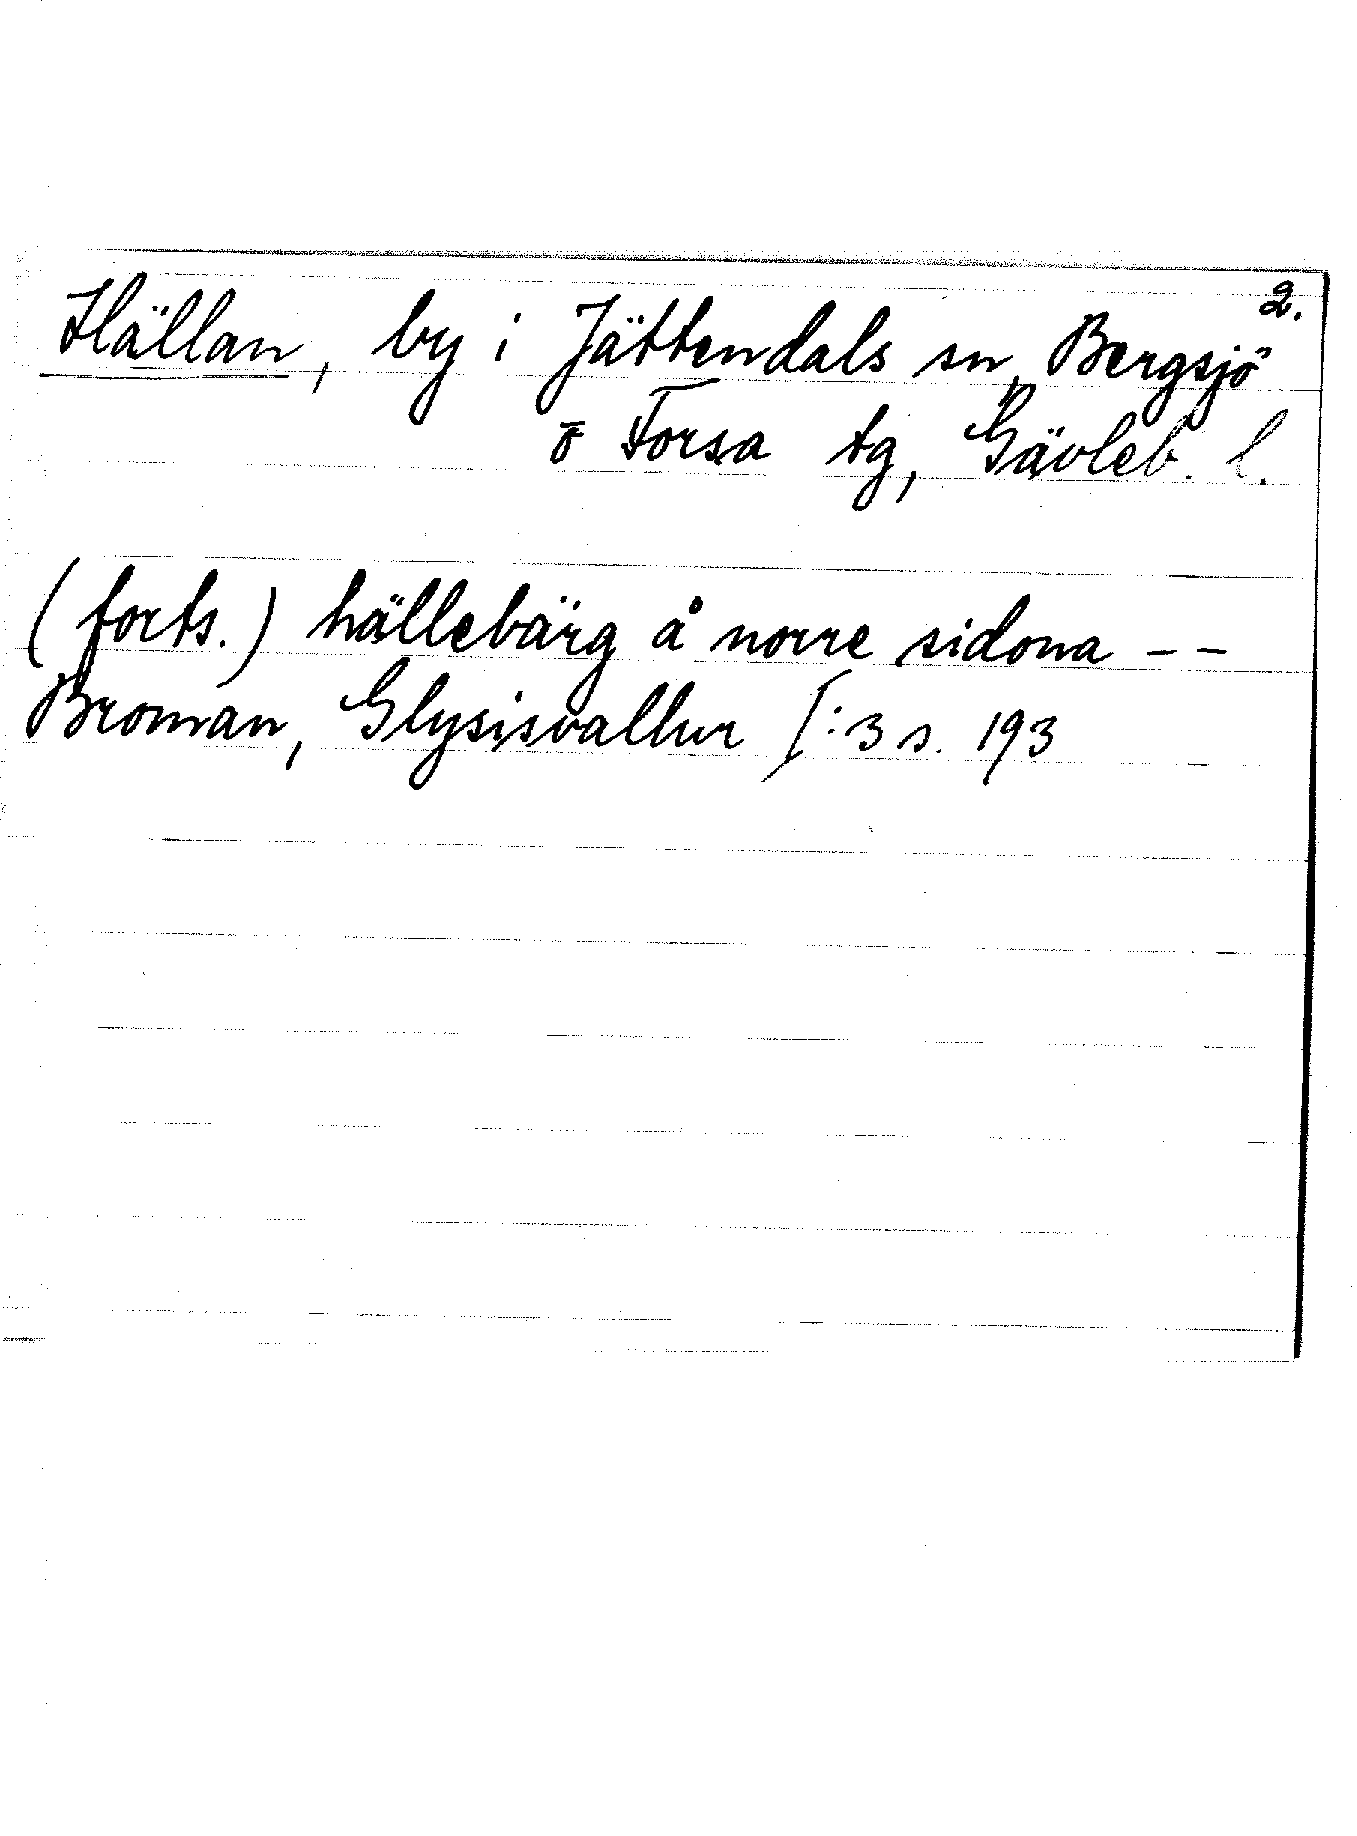 2.
Hällan, by i Jättendals sn, Bergsjö
o Forsa tg, Gävleb. l.
(forts.) hällebärg å norre sidona --
Broman, Glysisvallur I:3 s. 193